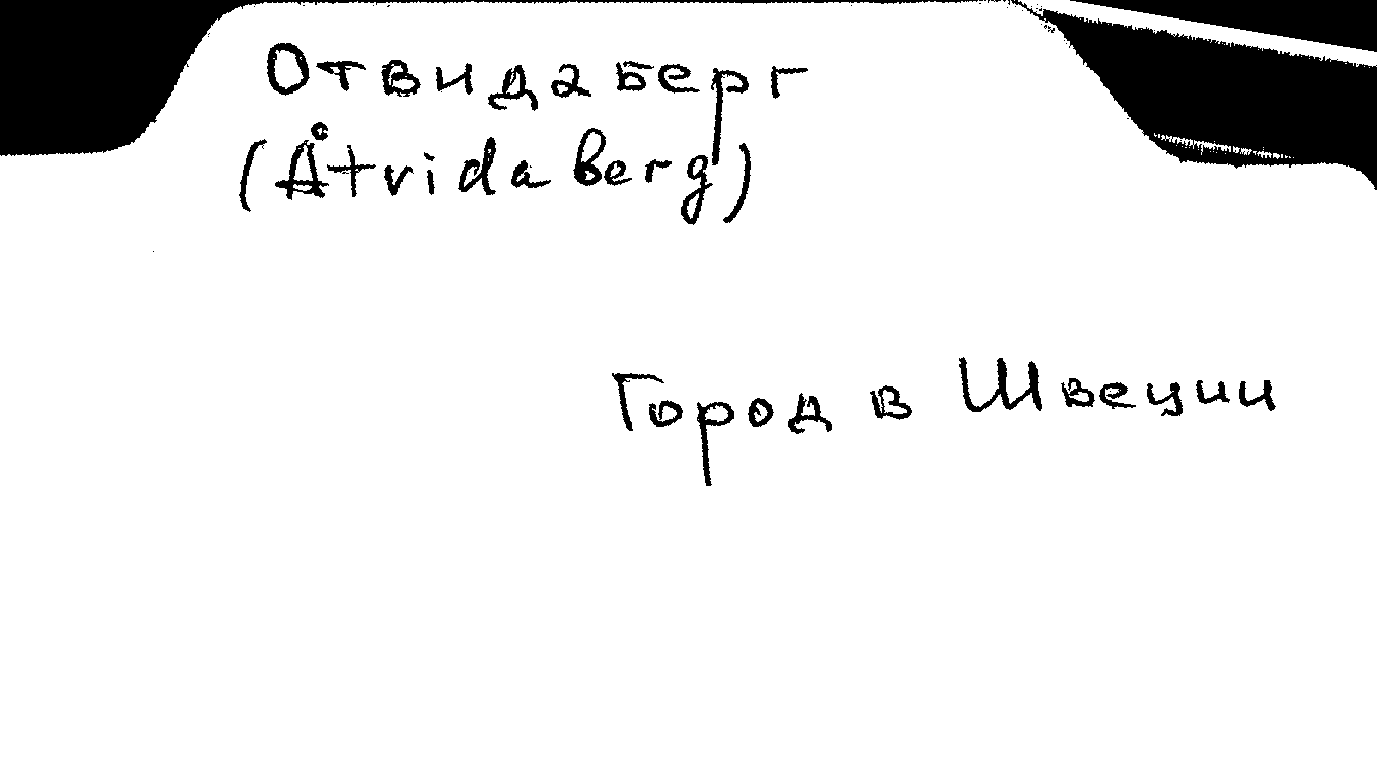 Отвидаберг
(Åtvidaberg)
Город в Швеции